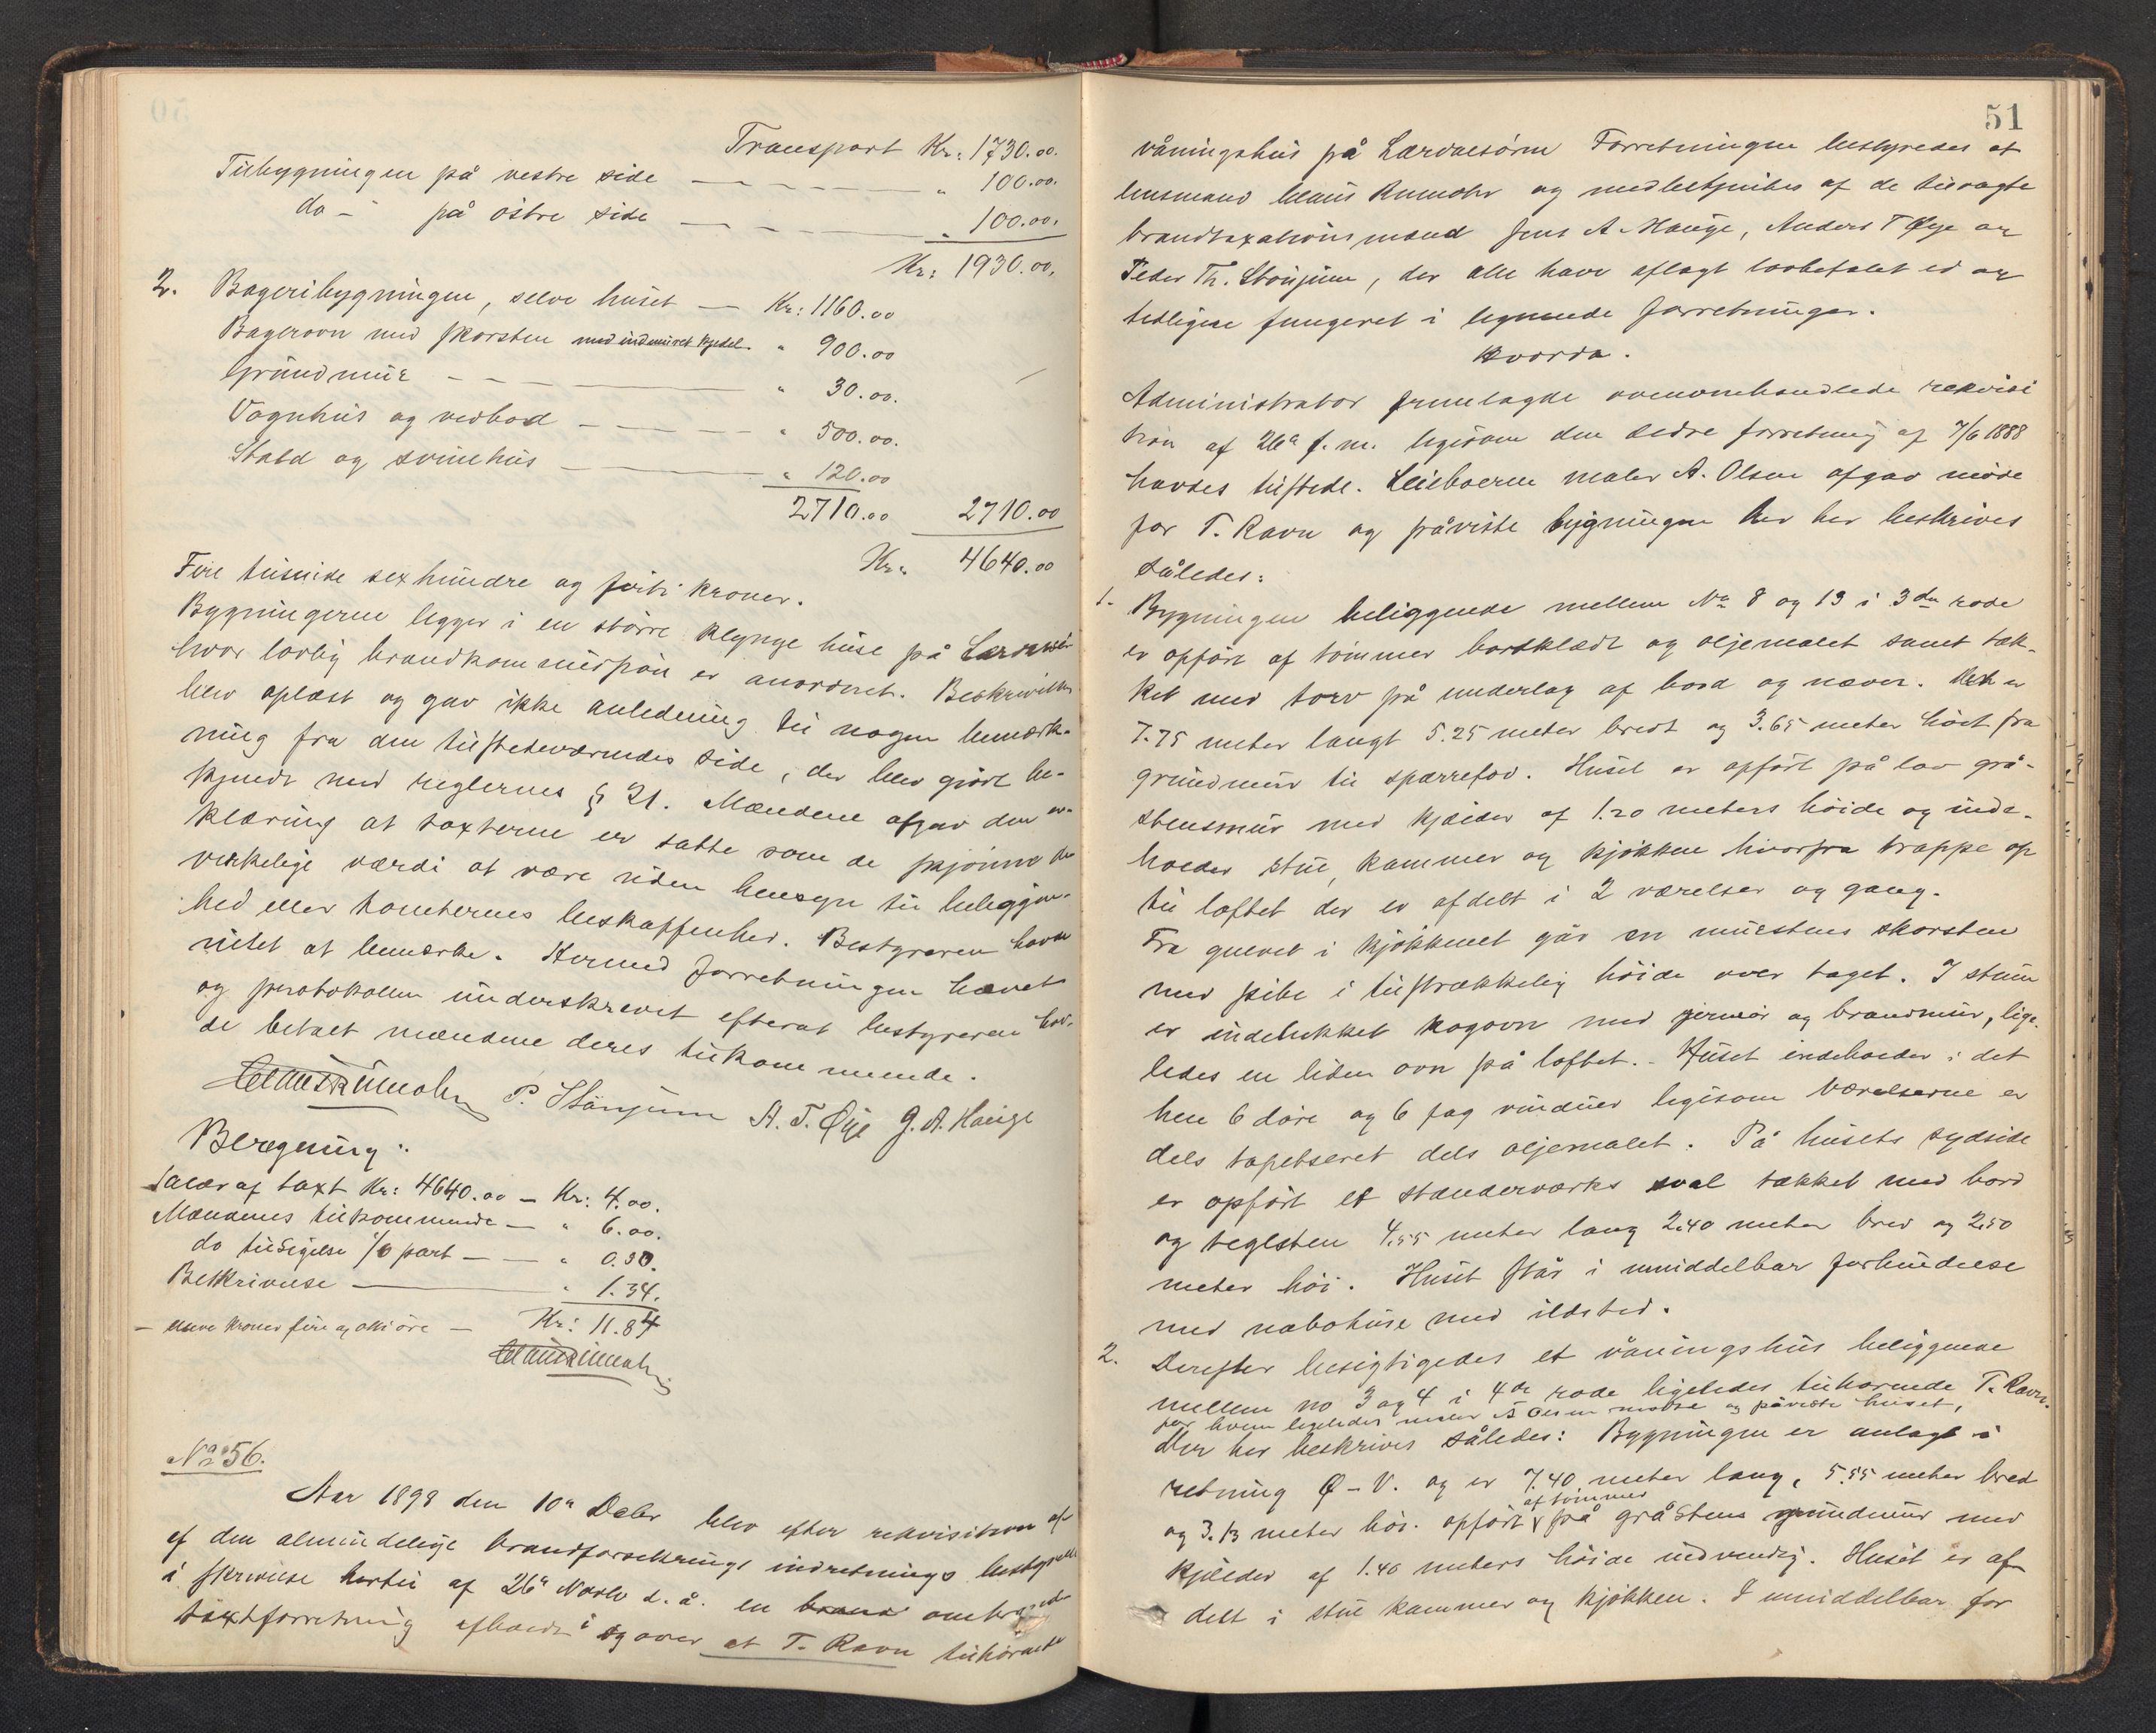 Transport Kr: 1730.00.
Tilbygningen på vestre side — " 100.00.
do — på østre side — " 100.00.
Kr: 1930.00.
2. Bageribygningen, selve huset — Kr: 1160.00
Bagerovn med skorsten med indmuret kjedel. " 900.00
Grundmur — " 30.00.
Vognhus og vedbod — " 500.00.
Stald og svinehus — " 120.00
2710.00 2710.00
Kr: 4640.00
Fire tusinde sexhundre og förti kroner.
Bygningerne ligger i en större klynge huse på Lærdalsör
hvor lovlig brandkommission er anordnet. Beskrivelsen
blev oplæst og gav ikke anledning til nogen bemærk-
ning fra den tilstedeværendes side, der blev gjort be-
kjendt med reglernes § 21. Mændene afgav den er-
klæring at taxterne er satte som de skjønne den
virkelige værdi at være uden hensyn til beliggen-
hed eller tomternes beskaffenhed. Bestyreren havde
intet at bemærke. Hermed forretningen hævet
og protokollen underskrevet efterat bestyreren hav-
de betalt mændene deres tilkommende.
Claus Rumohr P. Stönjum A. T. Øye J. A. Hauge
Beregning:
Salær af taxt Kr: 4640.00 — Kr: 4.00.
Mændenes tilkommende — " 6.00.
do tilsigelse 1/6 part — " 0.30.
Beskrivelse — " 1.34.
— elleve kroner fire og otti öre — Kr: 11.84
Claus Rumohr
No 56.
Aar 1898 den 10de Debr blev efter rekvisition af
af den almindelige brandforsikrings indretnings bestyrelse
i skrivelse hertil af 26de Novbr d. å. en brand omtaxe
taxtforretning afholdt i og over et T. Ravn tilhørende
51
våningshus på Lærdalsören Forretningen bestyredes af
lensmand Claus Rumohr og medbetjentes af de tilvagte
brandtaxationsmænd Jens A Hauge, Anders T Øye og
Peder Th. Stönjum, der alle have aflagt lovbefalet ed og
tidligere fungeret i lignende forretninger.
Hvorda.
Administrator fremlagde ovenomhandlede rekvisi
tion af 26de f. m. ligesom den ældre forretning af 7/6 1888
havdes tilstede. Leieboeren maler A. Olsen afgav möde
for T. Ravn og påviste bygningen der her beskrives
således:
1. Bygningen beliggende mellem No 8 og 13 i 3die rode
er opfört af tömmer bordklædt og oljemalet samt tæk-
ket med torv på underlag af bord og næver. Den er
7.75 meter langt 5.25 meter bredt og 3.65 meter höit fra
grundmur til sparrefod. Huset er opfört på lav grå-
stensmur med kjælder af 1.20 meters höide og inde-
holder stue, kammer og kjökken hvorfra trappe op
til loftet der er afdelt i 2 værelser og gang.
Fra gulvet i kjökkenet går en murstens skorsten
med pibe i tilstrækkelig höide over taget. I stuen
er indelukket kogovn med jernrör og brandmur, lige-
ledes en liden ovn på loftet. - Huset indeholder i det
hele 6 döre og 6 fag vinduer ligesom værelserne er
dels tapetseret dels oljemalet. På husets sydside
er opfört et stænderværks sval tækket med bord
og teglsten 4.55 meter lang 2.40 meter bred og 2.50
meter höi. Huset står i umiddelbar forbindelse
med nabohuse med ildsted.
2. Derefter besigtigedes et våningshus beliggende
mellem no 3 og 4 i 4de rode ligeledes tilhørende T. Ravn.
for hvem ligeledes maler A Olsen mödte og påviste huset,
Der her beskrives således: Bygningen er anlagt i
retning Ø - V. og er 7.40 meter lang, 5.55 meter bred
af tömmer
og 3.13 meter höi. opfört på gråstens grundmur med
kjælder af 1.40 meters höide indvendig. Huset er af-
delt i stue kammer og kjökken. I umiddelbar for